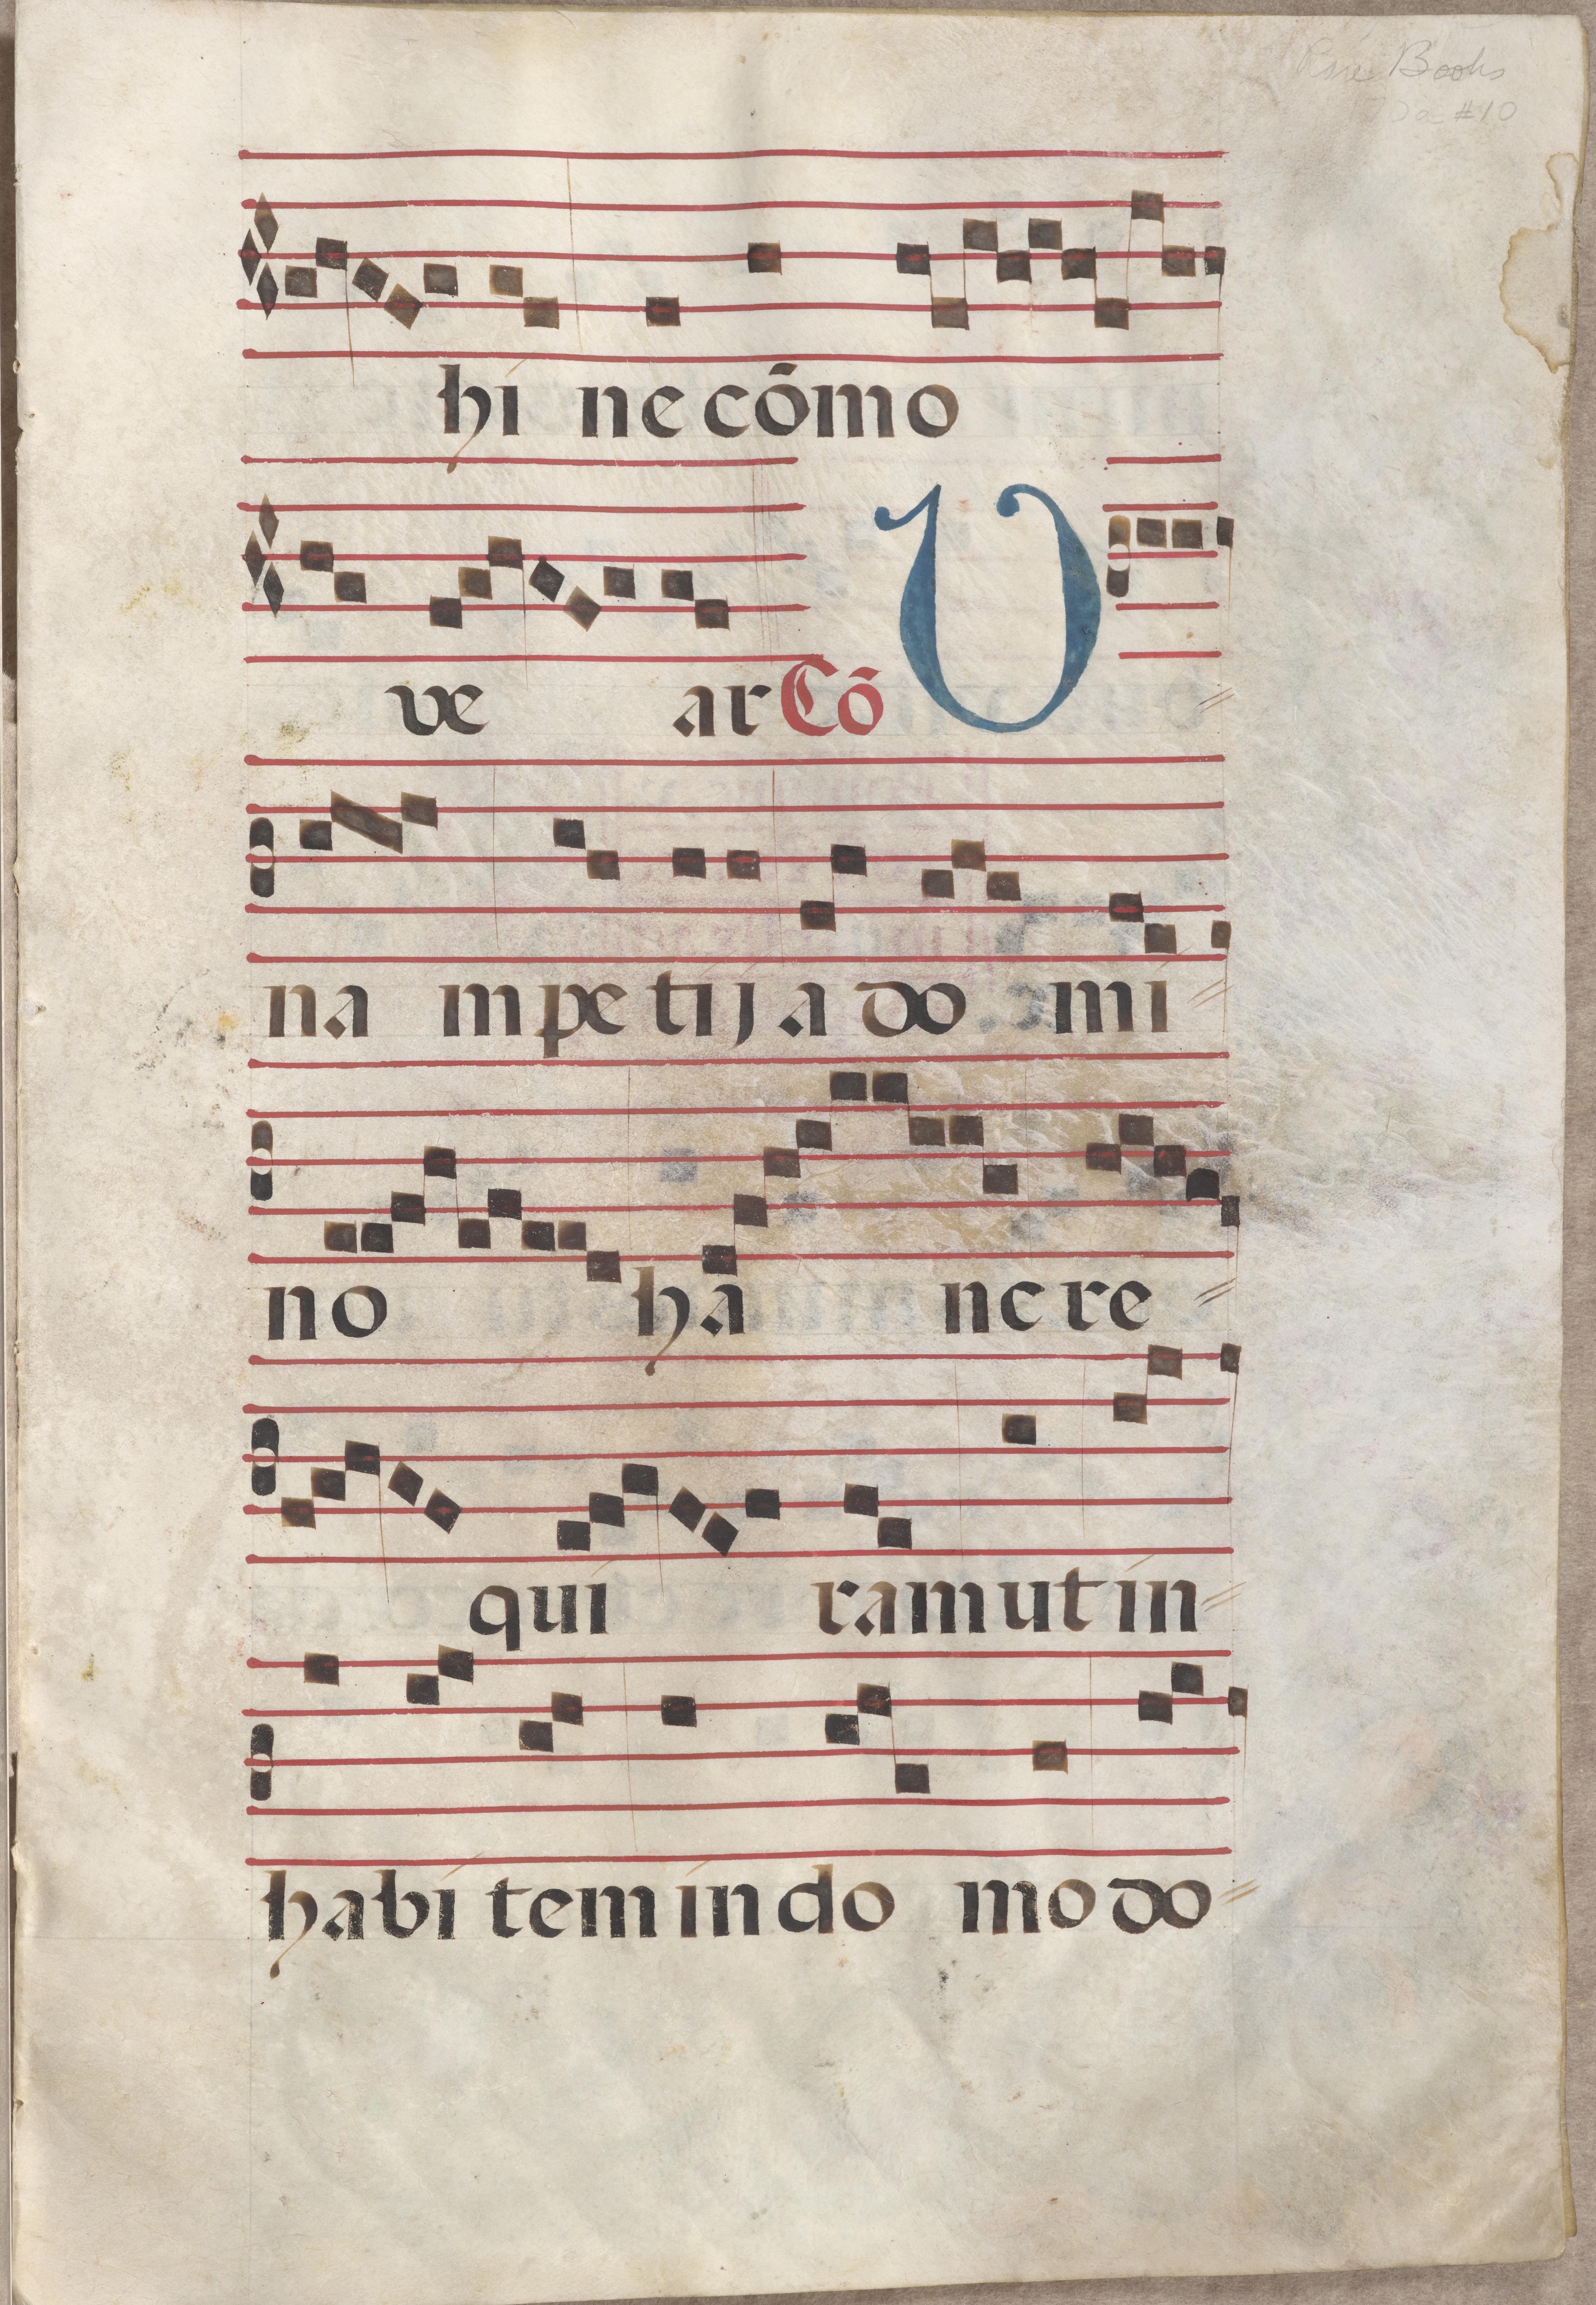 Rare Books
#10
hi ne cōmo
ve ar Cō U
na m pe ti j a do mi
no ha nc re
qui ram ut in
habi tem in do mo do